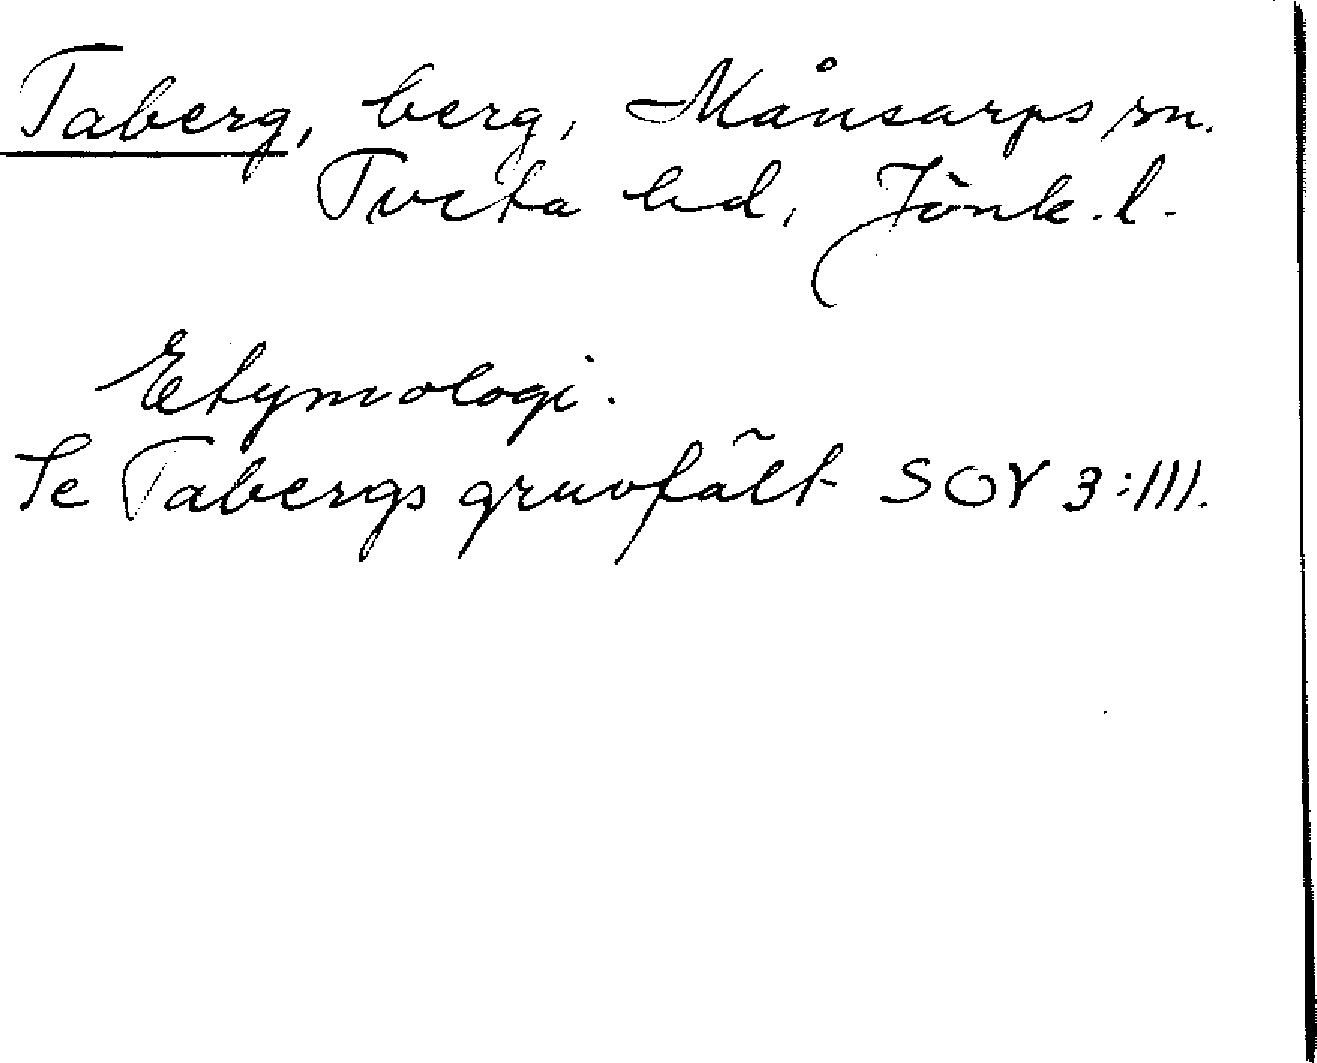 Taberg, berg, Månsarps sn.
Tveta hd, Jönk. l.
Etymologi.
Se Tabergs gruvfält SOV 3:111.